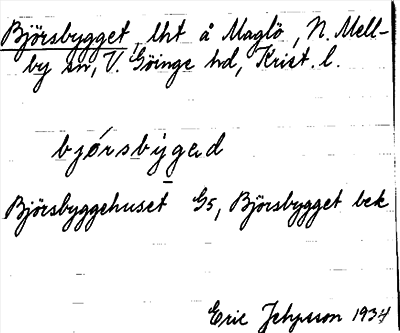 Björsbygget, lht å Maglö, N. Mell-
by sn, V. Göinge hd, Krist. l.
bjórsbýgəd
Björsbyggehuset G5, Björsbygget bek
Eric 1934